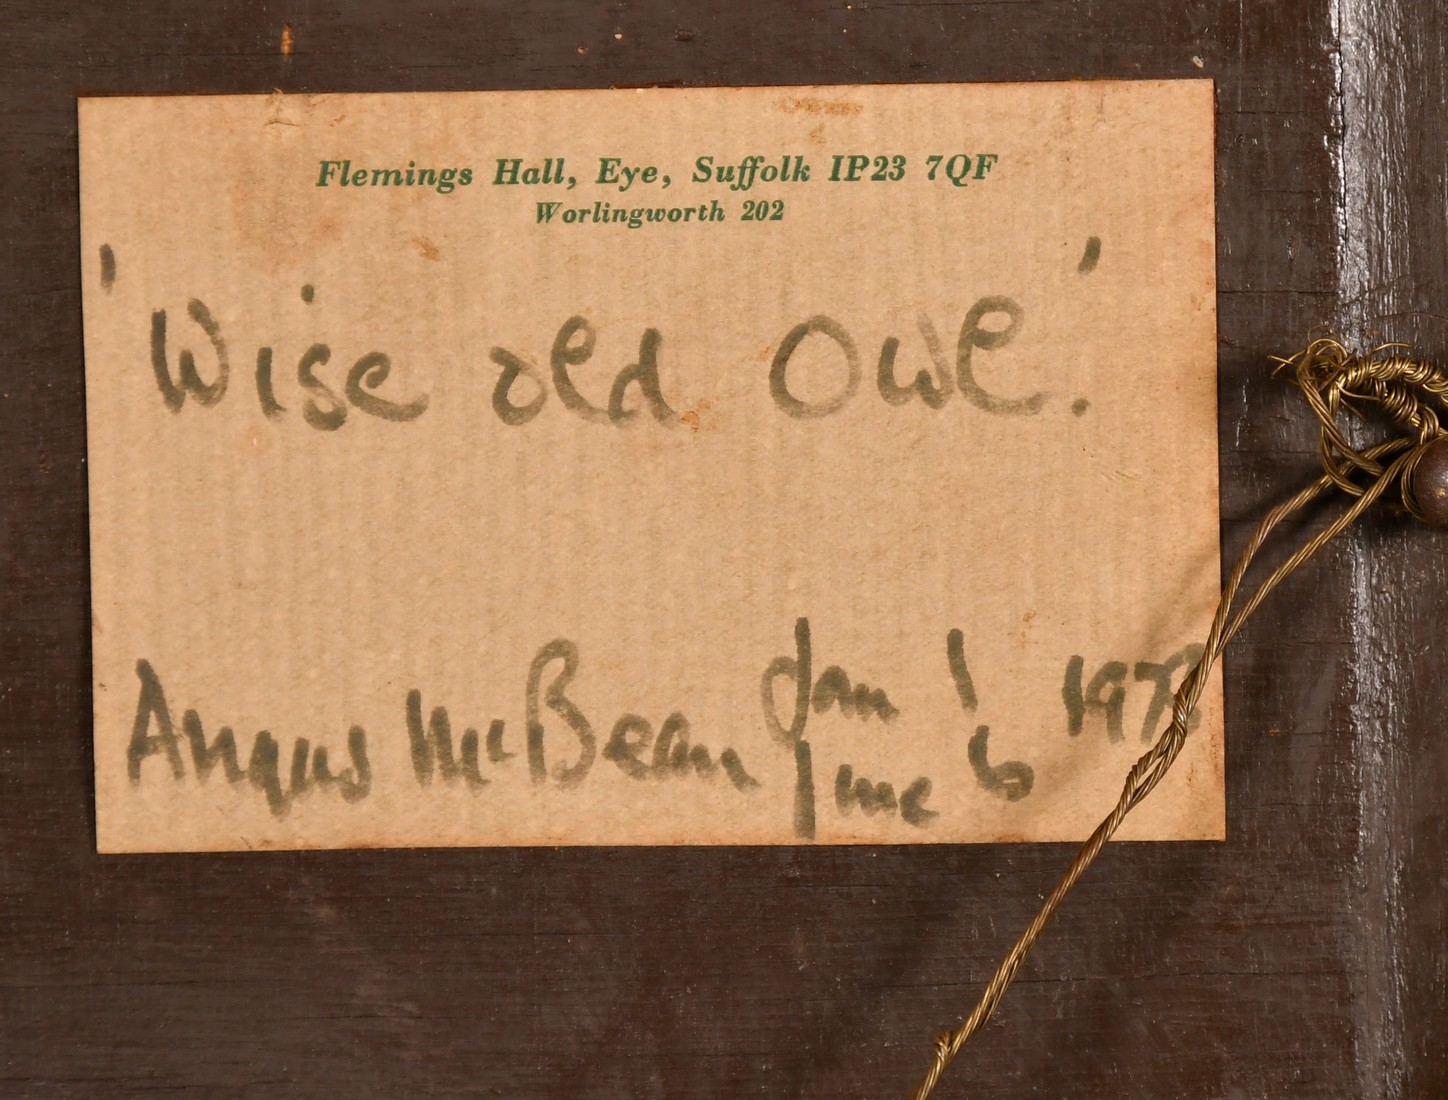 Flemings Hall, Eye, Suffolk IP23 7QF
Worlingworth 202
'Wise old Owl.'
Angus McBean Jan 1
June 6